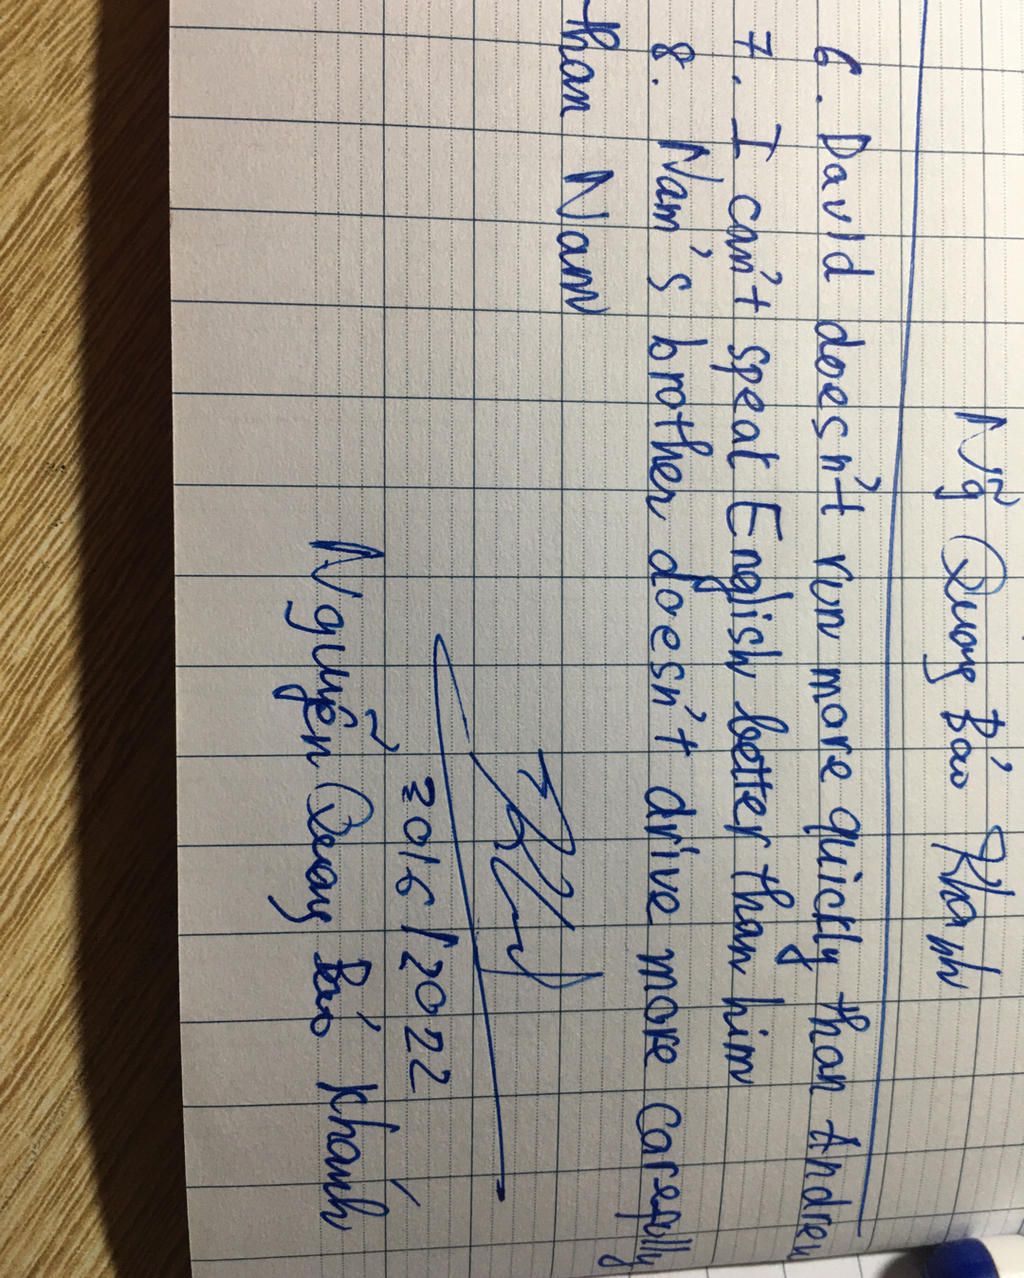 Ng̃ Quang Bảo Khanh
6. David doesn't run more quickly than Andrew
7. I can't speak English better than him
8. Nam's brother doesn't drive more carefully
than Nam
30/6/2022
Nguyễn Quang Bảo Khánh